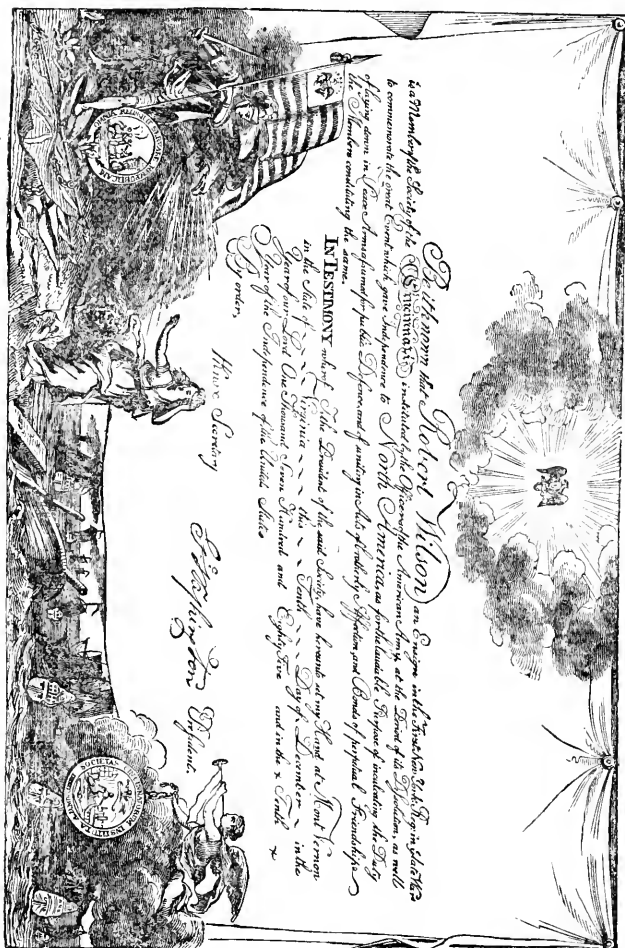 Be it known that Robert Wilson an Ensign in the First New York Reg.
is a Member of the Society of the Cincinnati; instituted by the Officers of the American Army, at the Period of its Dissolution, as well
to commemorate the great Event which gave Independence to North America, as for the laudable Purpose of inculcating the Duty
of laying down in Peace Arms assumed for public Defence, and of uniting in Acts of brotherly Affection, and Bonds of perpetual Friendship
the Members constituting the same.
IN TESTIMONY whereof I, the President of the said Society, have hereunto set my Hand at Mount Vernon
in the State of Virginia this Tenth Day of December in the
Year of our Lord One Thousand Seven Hundred and Eighty Five and in the Tenth
Year of the Independence of the United States.
By order,
Secretary
G. Washington President.
OMNIA SERVARE REMPUBLICAM
SOCIETAS INSTITUTA A.D.